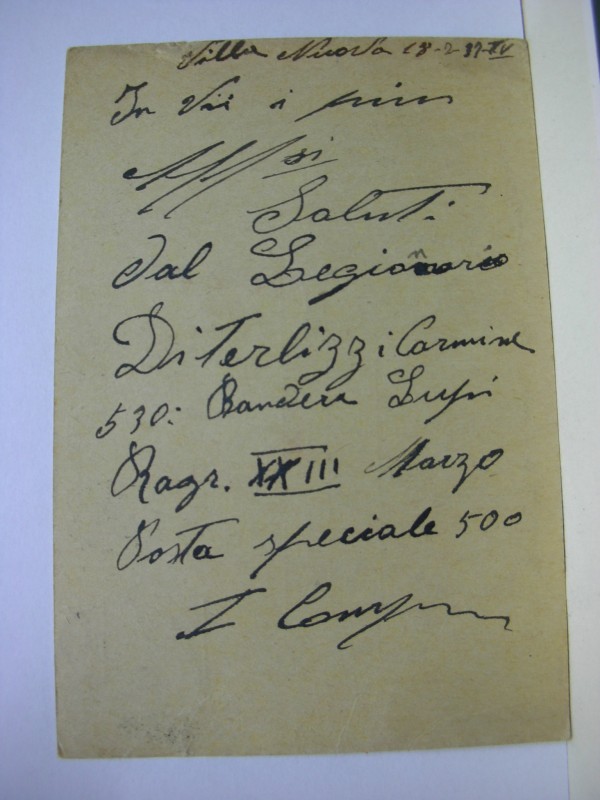 Villa Nuova 18-2-37-XV
In Vii i
Aff/si
Saluti
dal Legionario
Di Terlizzi Carmine
530: Bandera Lupi
Ragr. XXIII Marzo
Posta speciale 500
I Comp